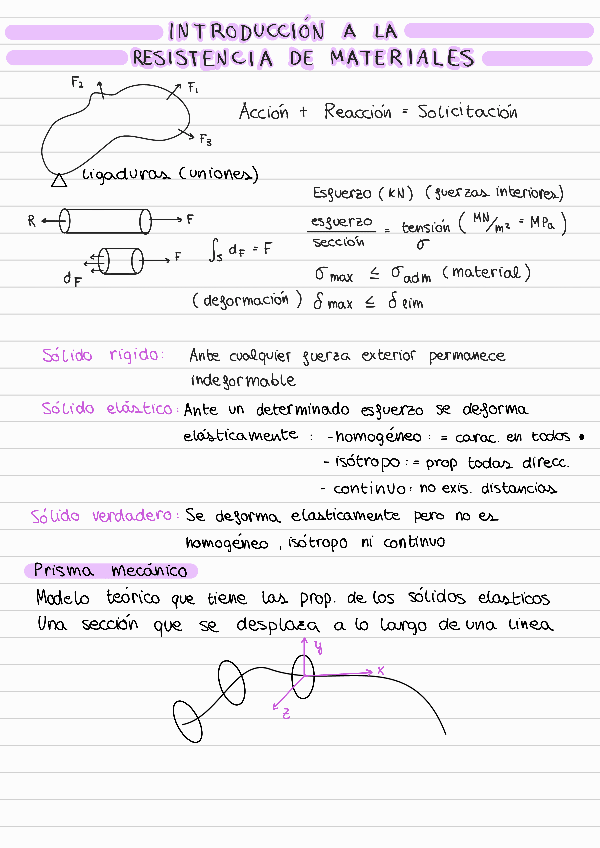 INTRODUCCIÓN A LA
RESISTENCIA DE MATERIALES
F₂
F₁
F₃
Acción + Reacción = Solicitación
ligaduras (uniones)
Esfuerzo (KN) (fuerzas interiores)
R
F
esfuerzo/sección = tensión (MN/m² = MPa)
σ
F
dF
∫s dF = F
σmax ≤ σadm (material)
(deformación) δmax ≤ δlim
Sólido rígido: Ante cualquier fuerza exterior permanece
indeformable
Sólido elástico: Ante un determinado esfuerzo se deforma
elásticamente : - homogéneo: = carac. en todos •
- isótropo: = prop todas direcc.
- continuo: no exis. distancias
Sólido verdadero: Se deforma elasticamente pero no es
homogéneo, isótropo ni continuo
Prisma mecánico
Modelo teórico que tiene las prop. de los sólidos elasticos
Una sección que se desplaza a lo largo de una linea
y
x
z